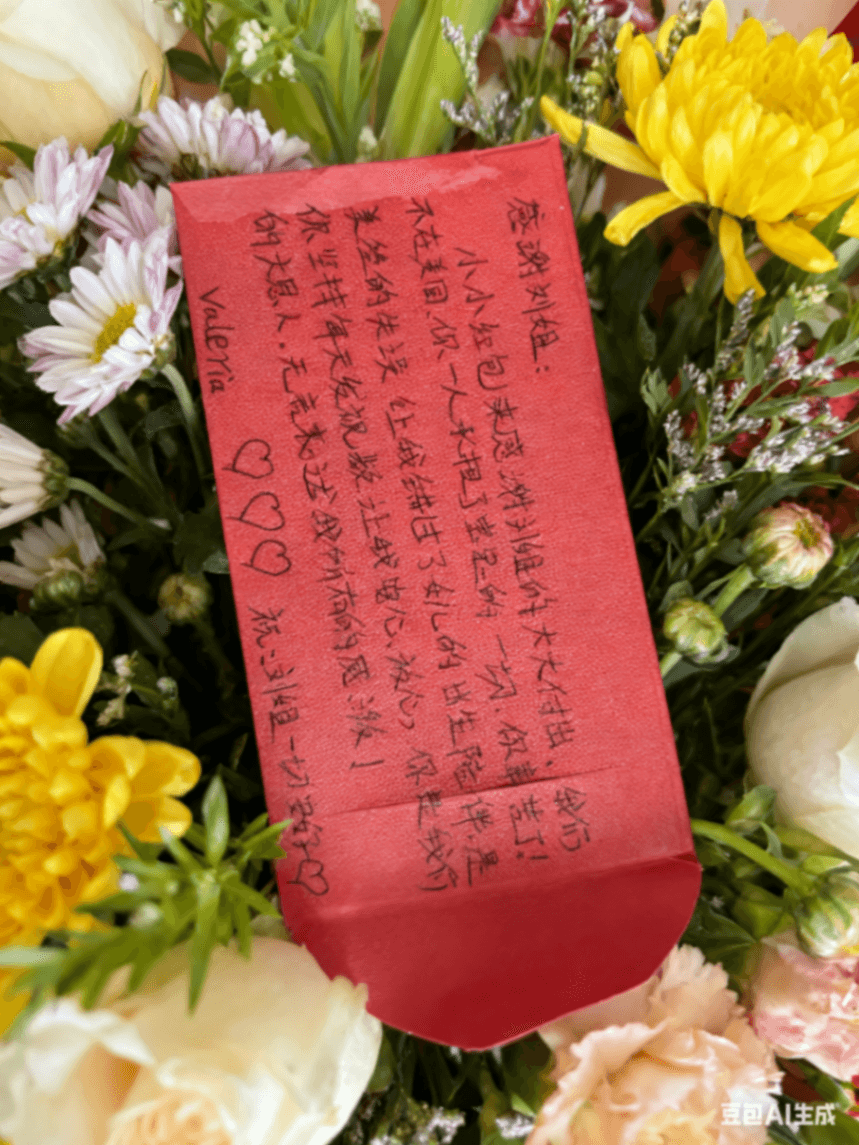 感谢刘姐：
小小红包来感谢刘姐的大大付出、我们
不在美国、你一人承担了宝宝的一切、你辛苦了！
美签的失误 让我错过了女儿的出生陪伴、是
你坚持每天发视频、让我安心、放心，你是我们
的大恩人。无言表达我所有的感激！
Valeria ♡♡♡ 祝：刘姐一切都好♡
豆包AI生成